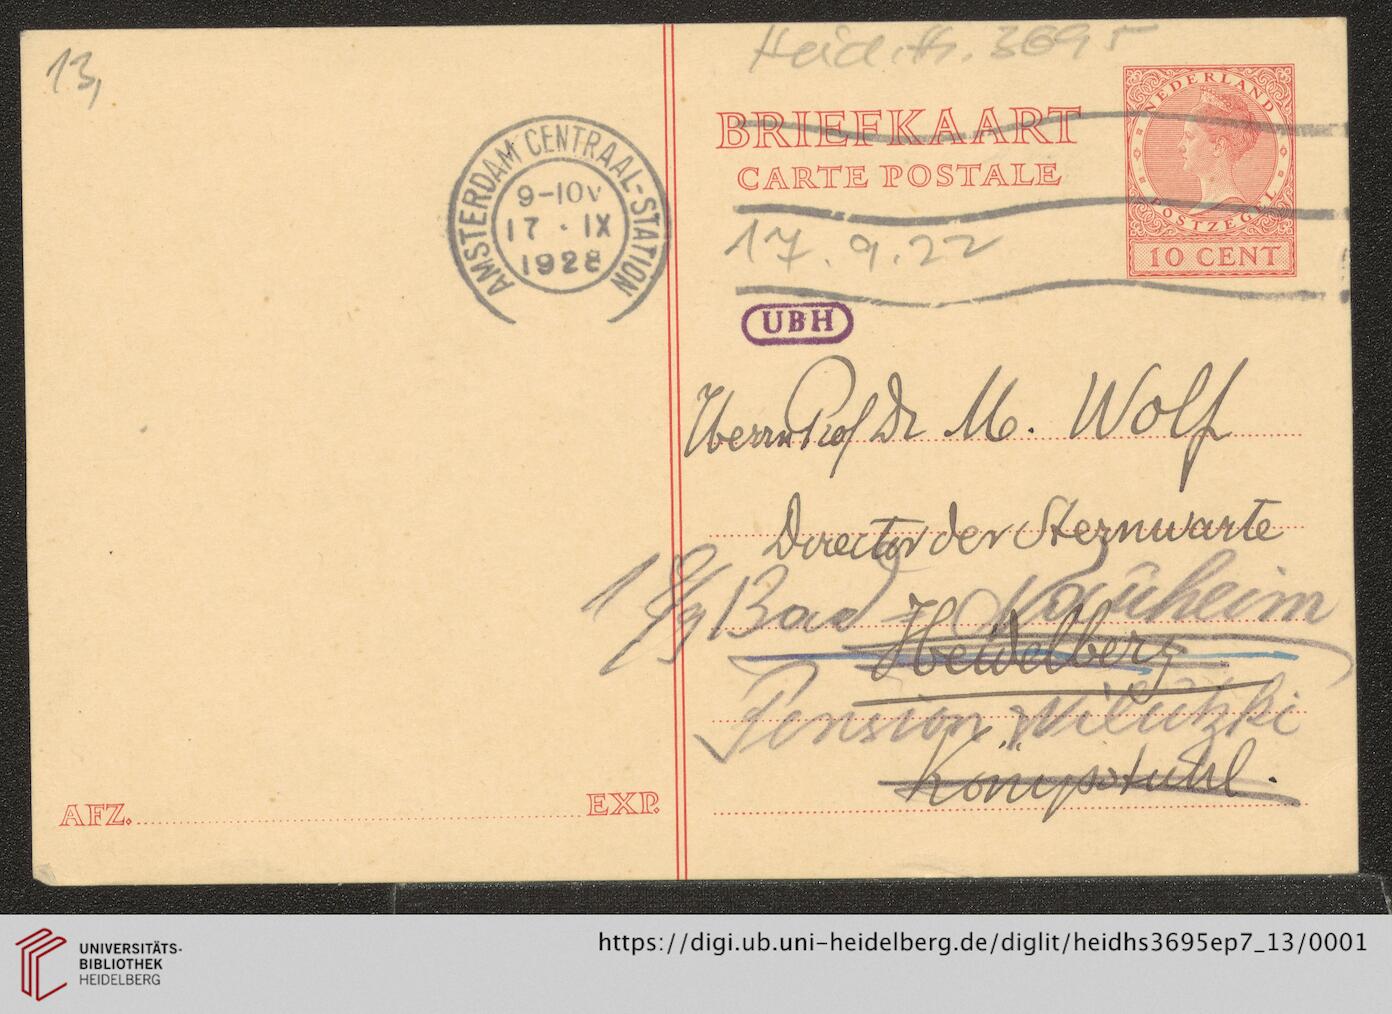 13,
Heid. Hs. 3695
BRIEFKAART
CARTE POSTALE
NEDERLAND
POSTZEGEL
10 CENT
AMSTERDAM CENTRAAL-STATION
9-10V
17 · IX
1928
17.9.22
UBH
Herrn Prof Dr M. Wolf
Director der Sternwarte
Bad-Nauheim
Heidelberg
Pension Wilutzki
Königstuhl.
AFZ. EXP.
UNIVERSITÄTS-
BIBLIOTHEK
HEIDELBERG
https://digi.ub.uni-heidelberg.de/diglit/heidhs3695ep7_13/0001